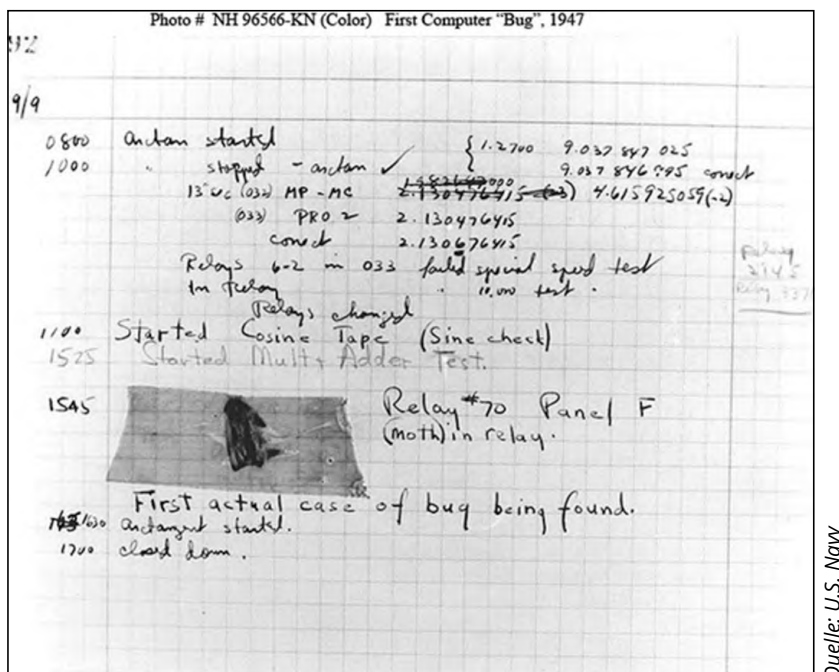 Photo # NH 96566-KN (Color) First Computer “Bug”, 1947
92
9/9
0800 arctan started { 1.2700 9.037 847 025
1000 " stopped - arctan ✓ 9.037 846 795 correct
13"uc (032) MP-MC 2.130476415 4.615925059(-2)
(033) PRO 2 2.130476415
correct 2.130676415
Relays 6-2 in 033 failed special speed test
In Relay " 10.000 test .
Relays changed
Relay
2145
Relay 337
1100 Started Cosine Tape (Sine check)
1525 Started Mult + Adder Test.
1545 Relay #70 Panel F
(moth) in relay.
First actual case of bug being found.
1630 arctangent started.
1700 closed down.
Quelle: U.S. Navy